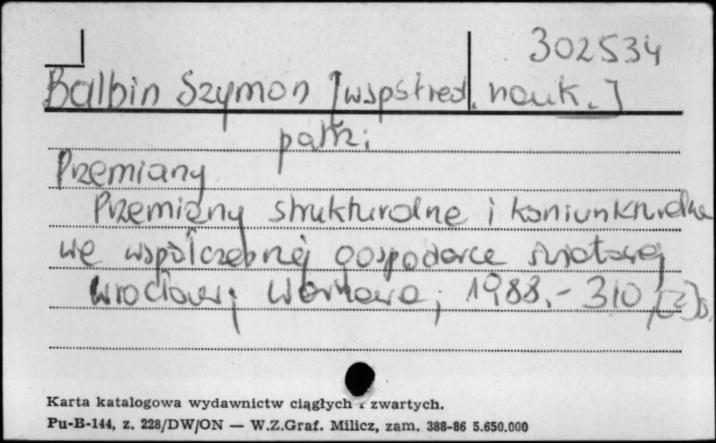 302534
Balbin Szymon [wspótred. nauk.]
patrz:
Przemiany
Przemiany strukturalne i koniunkturalne
we współczesnej gospodarce światowej
Wrocław; Warszawa, 1988.- 310, [2] s.
Karta katalogowa wydawnictw ciągłych i zwartych.
Pu-B-144, z. 228/DW/ON — W.Z.Graf. Milicz, zam. 388-86 5.650.000